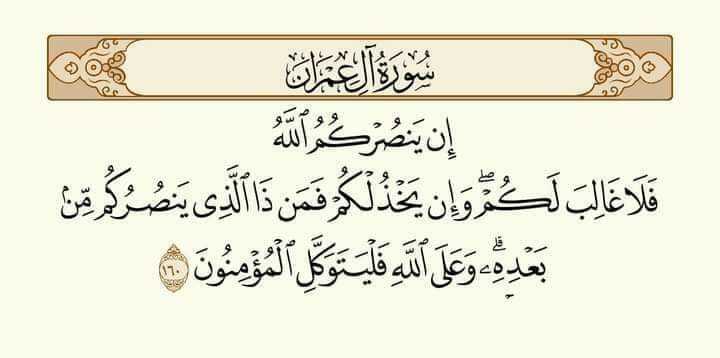 سُورَةُ آلِ عِمْرَان
إِن يَنصُرْكُمُ ٱللَّهُ
فَلَا غَالِبَ لَكُمْۖ وَإِن يَخْذُلْكُمْ فَمَن ذَا ٱلَّذِى يَنصُرُكُم مِّنۢ
بَعْدِهِۦۗ وَعَلَى ٱللَّهِ فَلْيَتَوَكَّلِ ٱلْمُؤْمِنُونَ ١٦٠